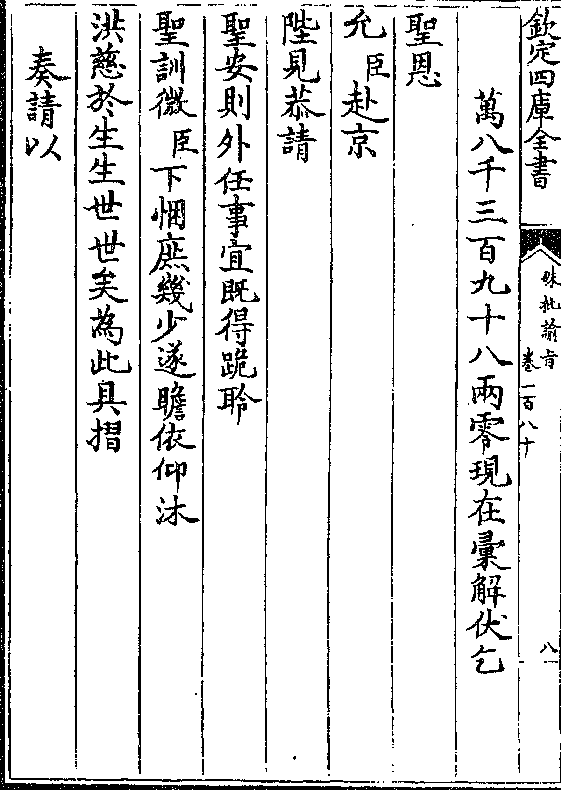 欽定四庫全書
硃批諭旨
卷一百八十
八
萬八千三百九十八兩零現在彚解伏乞
聖恩
允臣赴京
陛見恭請
聖安則外任事宜既得跪聆
聖訓微臣下悃庶幾少遂瞻依仰沐
洪慈於生生世世矣為此具摺
奏請以